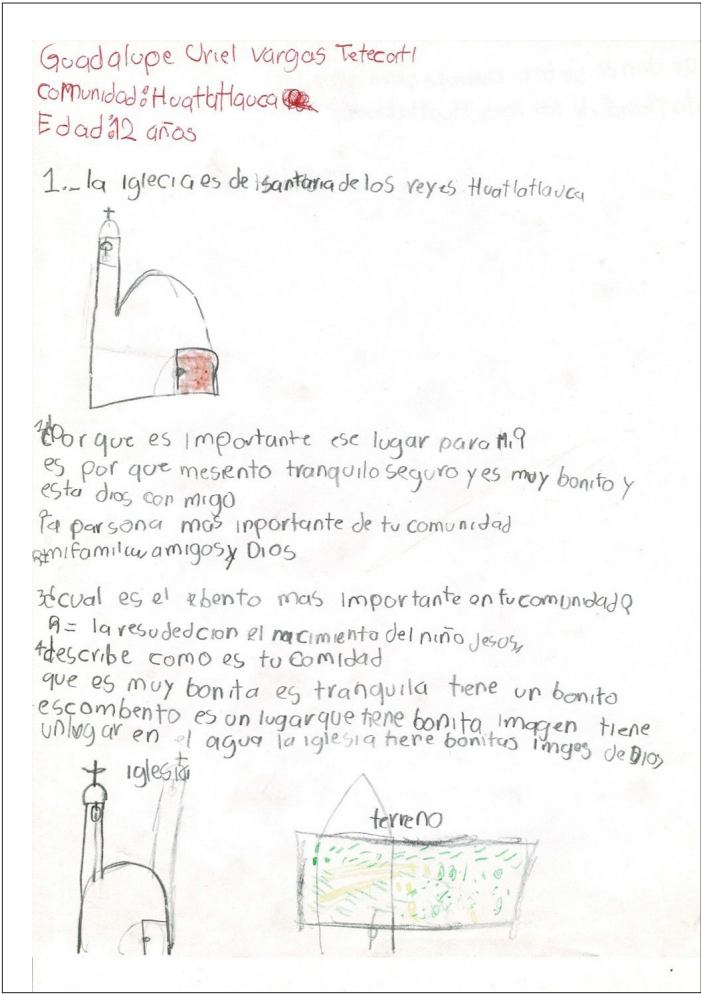 Guadalupe Uriel Vargas Tetecotl
comunidad: Huatlatlauca
Edad: 12 años
1._ la iglecia es de santaria de los reyes Huatlatlauca
¿Por que es importante ese lugar para Mi?
es por que mesiento tranquilo seguro y es muy bonito y
esta dios con migo
la parsona mas inportante de tu comunidad
R= mi familia amigos y Dios
3¿cual es el ebento mas importante en tu comunidad?
R= la resudedcion el nacimiento del niño Jesos,
4describe como es tu Comidad
que es muy bonita es tranquila tiene un bonito
escombento es un lugar que tiene bonita imagen tiene
unlugar en el agua la iglesia tiene bonitas imges de Dios
iglesia
terreno